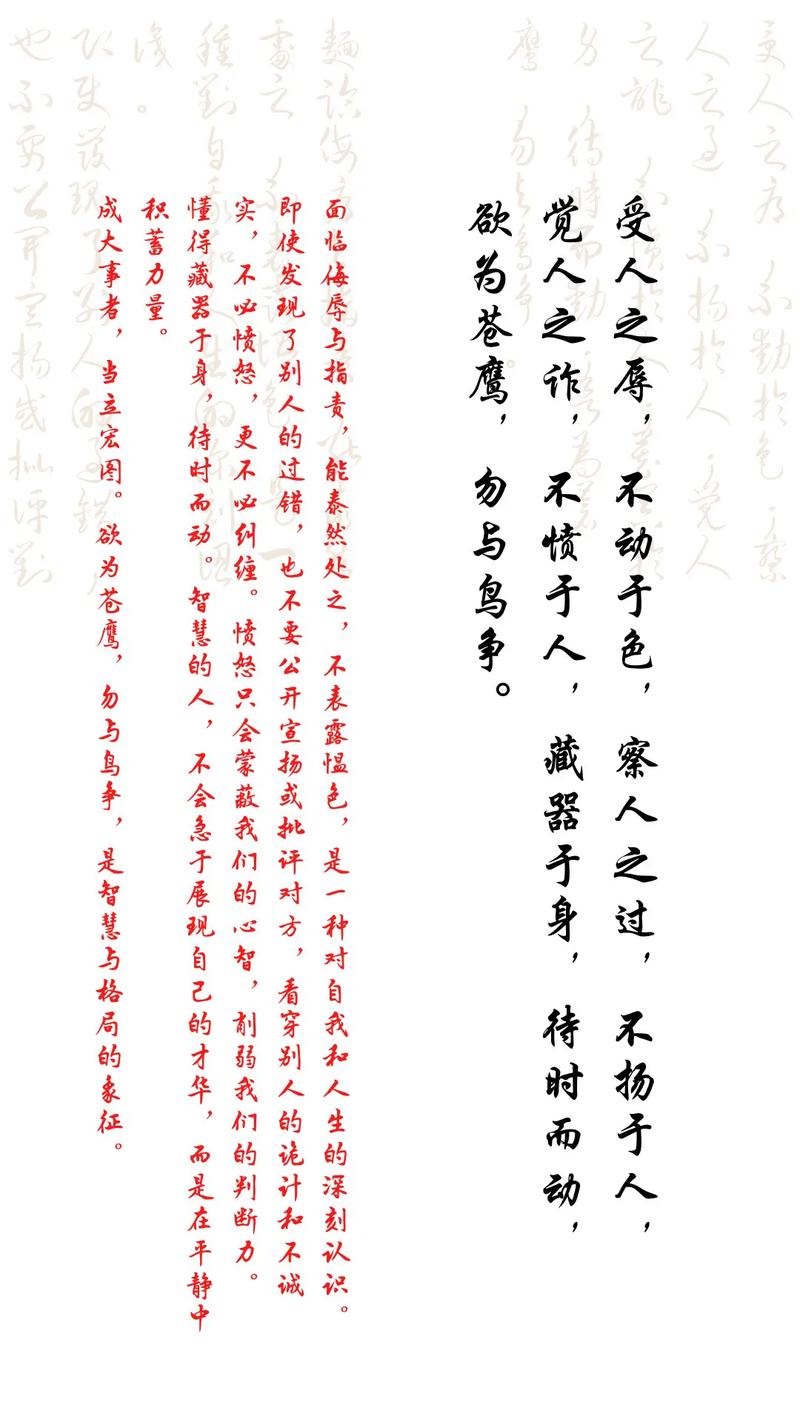 受人之辱，不动于色，察人之过，不扬于人，
觉人之诈，不愤于人，藏器于身，待时而动，
欲为苍鹰，勿与鸟争。
面临侮辱与指责，能泰然处之，不表露愠色，是一种对自我和人生的深刻认识。
即使发现了别人的过错，也不要公开宣扬或批评对方，看穿别人的诡计和不诚
实，不必愤怒，更不必纠缠。愤怒只会蒙蔽我们的心智，削弱我们的判断力。
懂得藏器于身，待时而动。智慧的人，不会急于展现自己的才华，而是在平静中
积蓄力量。
成大事者，当立宏图。欲为苍鹰，勿与鸟争，是智慧与格局的象征。